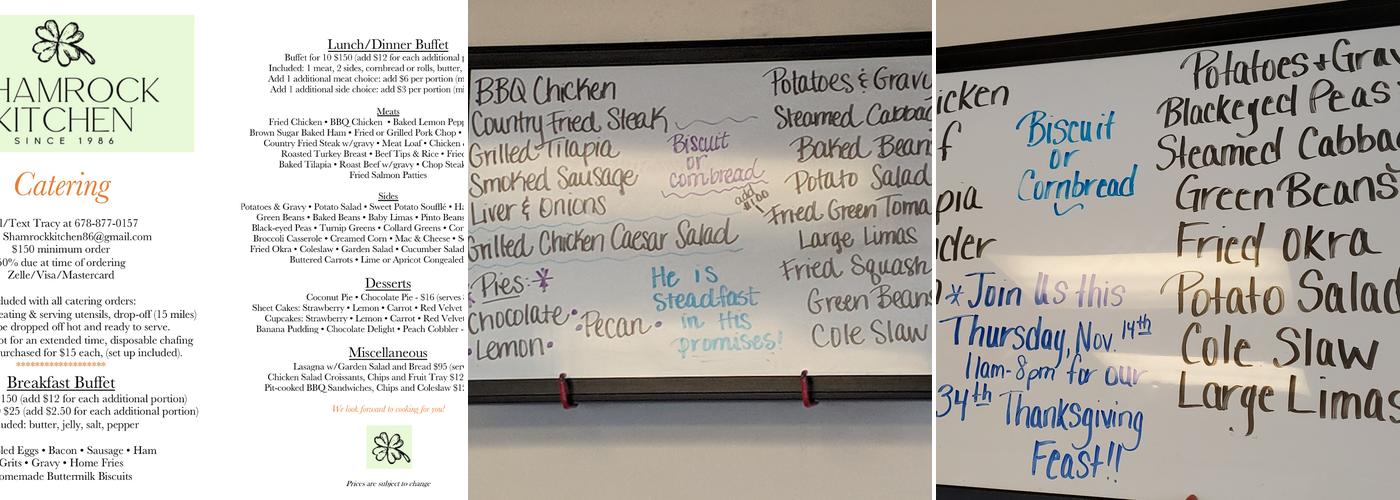 HAMROCK
KITCHEN
SINCE 1986
Catering
/Text Tracy at 678-877-0157
Shamrockkitchen86@gmail.com
$150 minimum order
50% due at time of ordering
Zelle/Visa/Mastercard
cluded with all catering orders:
eating & serving utensils, drop-off (15 miles)
be dropped off hot and ready to serve.
ot for an extended time, disposable chafing
urchased for $15 each, (set up included).
******************
Breakfast Buffet
150 (add $12 for each additional portion)
$25 (add $2.50 for each additional portion)
luded: butter, jelly, salt, pepper
led Eggs • Bacon • Sausage • Ham
Grits • Gravy • Home Fries
omemade Buttermilk Biscuits
Lunch/Dinner Buffet
Buffet for 10 $150 (add $12 for each additional p
Included: 1 meat, 2 sides, cornbread or rolls, butter,
Add 1 additional meat choice: add $6 per portion (m
Add 1 additional side choice: add $3 per portion (mi
Meats
Fried Chicken • BBQ Chicken • Baked Lemon Pepp
Brown Sugar Baked Ham • Fried or Grilled Pork Chop •
Country Fried Steak w/gravy • Meat Loaf • Chicken
Roasted Turkey Breast • Beef Tips & Rice • Fried
Baked Tilapia • Roast Beef w/gravy • Chop Steak
Fried Salmon Patties
Sides
Potatoes & Gravy • Potato Salad • Sweet Potato Soufflé • Ha
Green Beans • Baked Beans • Baby Limas • Pinto Beans
Black-eyed Peas • Turnip Greens • Collard Greens • Cor
Broccoli Casserole • Creamed Corn • Mac & Cheese • S
Fried Okra • Coleslaw • Garden Salad • Cucumber Salad
Buttered Carrots • Lime or Apricot Congealed
Desserts
Coconut Pie • Chocolate Pie - $16 (serves
Sheet Cakes: Strawberry • Lemon • Carrot • Red Velvet
Cupcakes: Strawberry • Lemon • Carrot • Red Velvet
Banana Pudding • Chocolate Delight • Peach Cobbler -
Miscellaneous
Lasagna w/Garden Salad and Bread $95 (ser
Chicken Salad Croissants, Chips and Fruit Tray $12
Pit-cooked BBQ Sandwiches, Chips and Coleslaw $1
We look forward to cooking for you!
Prices are subject to change
BBQ Chicken
Country Fried Steak
Grilled Tilapia
Smoked Sausage
Liver & Onions
Grilled Chicken Caesar Salad
Pies:
Chocolate
Lemon
Pecan
Biscuit
or
cornbread
add $1.00
He is
steadfast
in His
promises!
Potatoes & Gravy
Steamed Cabbag
Baked Bean
Potato Salad
Fried Green Toma
Large Limas
Fried Squash
Green Beans
Cole Slaw
icken
f
pia
der
Biscuit
or
Cornbread
*Join us this
Thursday, Nov. 14th
11am-8pm for our
34th Thanksgiving
Feast!!
Potatoes + Grav
Blackeyed Peas
Steamed Cabba
Green Beans
Fried Okra
Potato Salad
Cole Slaw
Large Limas